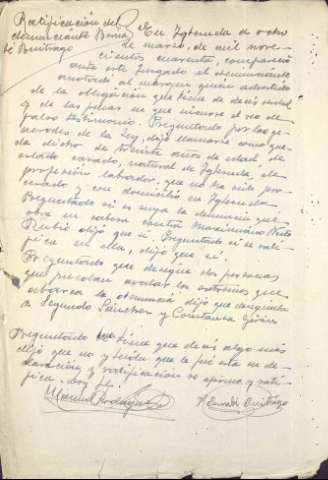 Ratificación del
denunciante Bona
te Buitrago
En Igüenuda a ocho
de marzo, de mil nove
cientos cuarenta, comparece
ante este Juzgado el denunciante
anotado al margen quien advertido
de la obligación que tiene de decir verdad
y de las penas en que incurre el reo de
falso testimonio. Preguntado por las ge
nerales de la Ley, dijo llamarse como que
da dicho de treinta años de edad, de
estado casado, natural de
profesión labrador, que no ha sido pro
cesado y con domicilio en
Preguntado si es suya la denuncia que
obra en cabeza contra Maximiano Prieto
Rubio dijo que sí. Preguntado si se rati
fica en ella, dijo que sí.
Preguntado que designe dos personas
que puedan avalar los extremos que
abarca la denuncia dijo que designaba
a Segundo Sánchez y Constanza Girón
Preguntado si tiene que decir algo más
dijo que no y leída que le fue esta su de
claración y ratificación se afirma y rati
fica, doy fe
Manuel Rodríguez
Buitrago